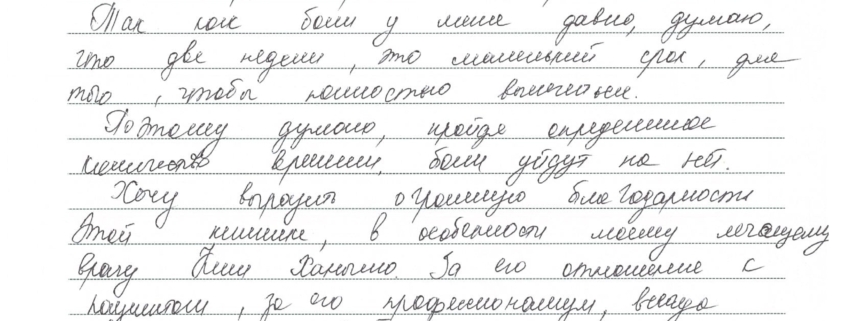 Так как боли у меня давно, думаю,
что две недели, это маленький срок, для
того, чтобы полностью вылечиться.
Поэтому думаю, пройдя определенное
количество времени, боли уйдут на нет.
Хочу выразить огромную благодарность
этой клинике, в особенности моему лечащему
врачу За его отношение с
пациентами, за его профессионализм, всегда